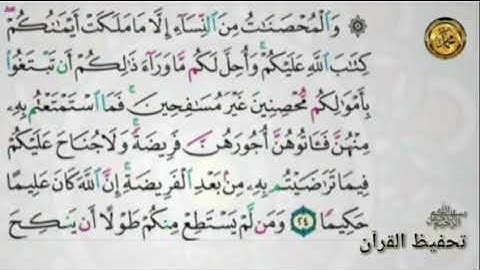 ۞ وَالْمُحْصَنَاتُ مِنَ النِّسَاءِ إِلَّا مَا مَلَكَتْ أَيْمَانُكُمْ
كِتَابَ اللَّهِ عَلَيْكُمْ وَأُحِلَّ لَكُم مَّا وَرَاءَ ذَٰلِكُمْ أَن تَبْتَغُوا
بِأَمْوَالِكُم مُّحْصِنِينَ غَيْرَ مُسَافِحِينَ ۚ فَمَا اسْتَمْتَعْتُم بِهِ
مِنْهُنَّ فَآتُوهُنَّ أُجُورَهُنَّ فَرِيضَةً ۚ وَلَا جُنَاحَ عَلَيْكُمْ
فِيمَا تَرَاضَيْتُم بِهِ مِن بَعْدِ الْفَرِيضَةِ ۚ إِنَّ اللَّهَ كَانَ عَلِيمًا
حَكِيمًا ٢٤ وَمَن لَّمْ يَسْتَطِعْ مِنكُمْ طَوْلًا أَن يَنكِحَ
محمد
تحفيظ القرآن